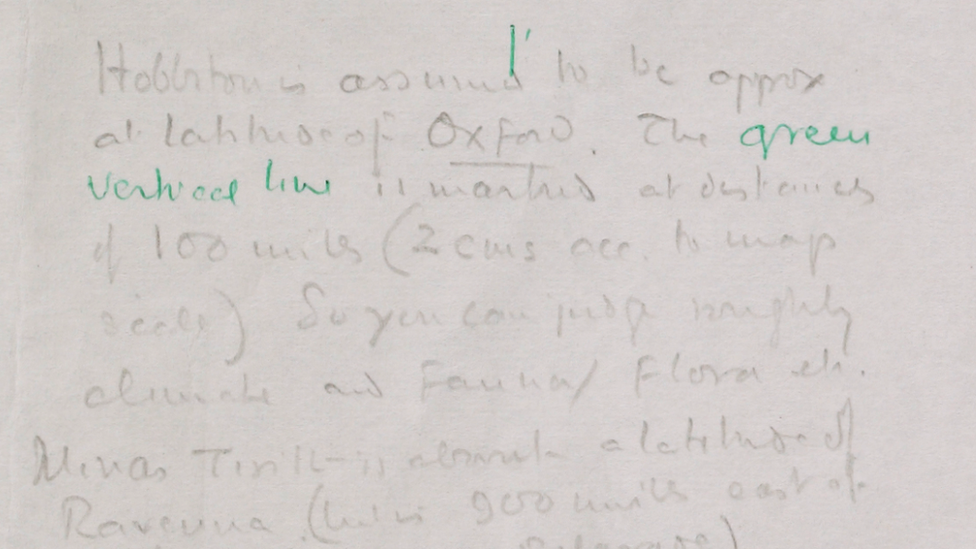 Hobbiton is assumed to be approx
at latitude of Oxford. The green
vertical line is marked at distances
of 100 miles (2 cms acc. to map
scale) So you can judge roughly
climate and Fauna/Flora etc.
Minas Tirith is about latitude of
Ravenna (but is 900 miles east of
Belgrade)